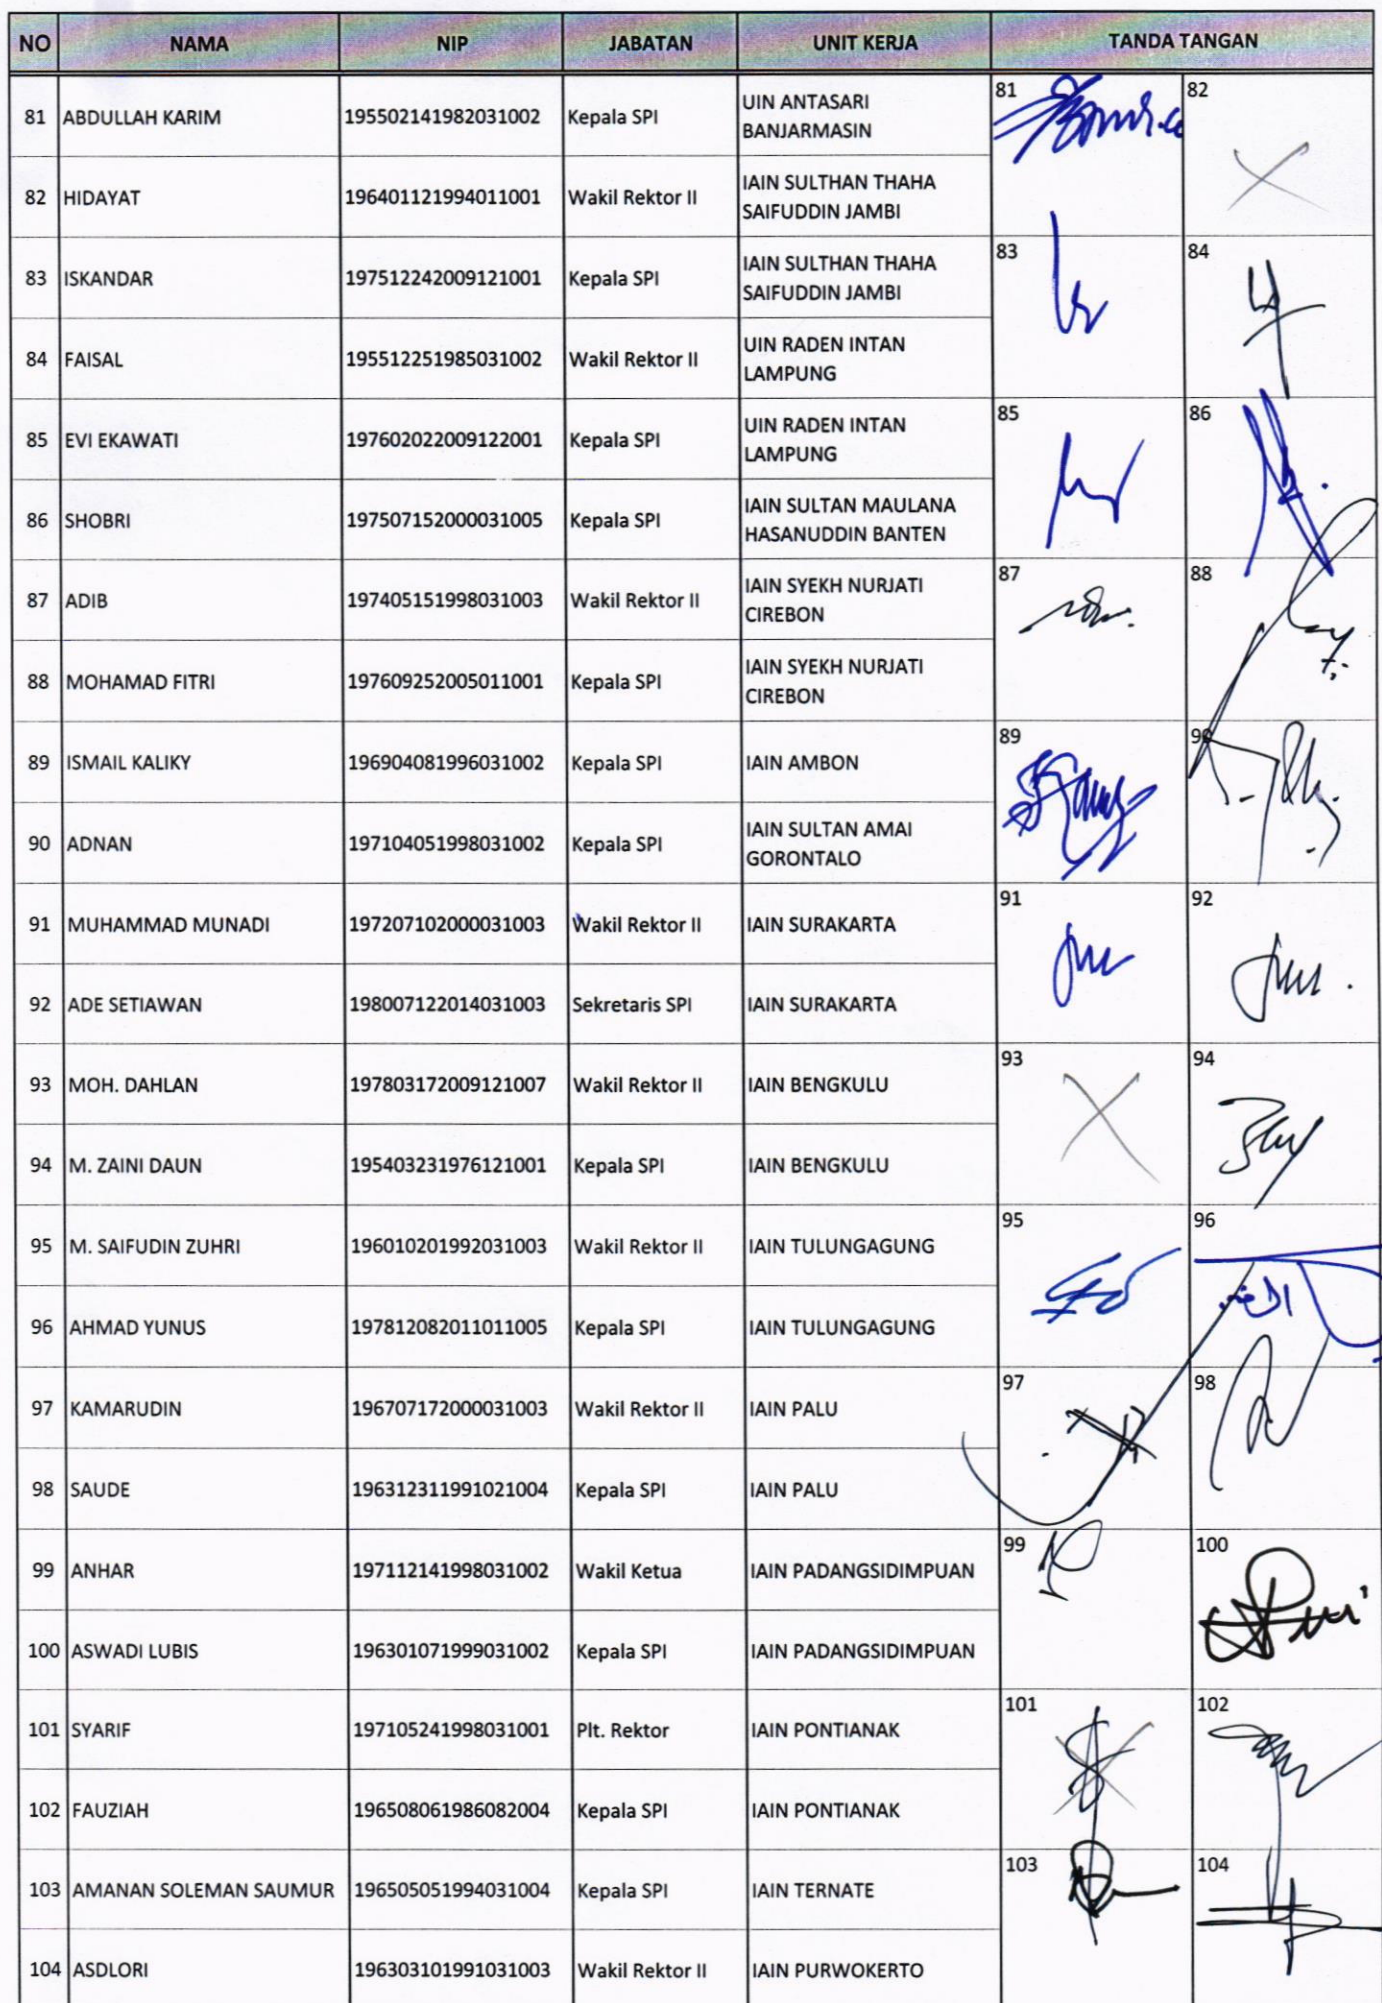 NO NAMA NIP JABATAN UNIT KERJA TANDA TANGAN
81 ABDULLAH KARIM 195502141982031002 Kepala SPI UIN ANTASARI BANJARMASIN 81 82
82 HIDAYAT 196401121994011001 Wakil Rektor II IAIN SULTHAN THAHA SAIFUDDIN JAMBI
83 ISKANDAR 197512242009121001 Kepala SPI IAIN SULTHAN THAHA SAIFUDDIN JAMBI 83 84
84 FAISAL 195512251985031002 Wakil Rektor II UIN RADEN INTAN LAMPUNG
85 EVI EKAWATI 197602022009122001 Kepala SPI UIN RADEN INTAN LAMPUNG 85 86
86 SHOBRI 197507152000031005 Kepala SPI IAIN SULTAN MAULANA HASANUDDIN BANTEN
87 ADIB 197405151998031003 Wakil Rektor II IAIN SYEKH NURJATI CIREBON 87 88
88 MOHAMAD FITRI 197609252005011001 Kepala SPI IAIN SYEKH NURJATI CIREBON
89 ISMAIL KALIKY 196904081996031002 Kepala SPI IAIN AMBON 89 90
90 ADNAN 197104051998031002 Kepala SPI IAIN SULTAN AMAI GORONTALO
91 MUHAMMAD MUNADI 197207102000031003 Wakil Rektor II IAIN SURAKARTA 91 92
92 ADE SETIAWAN 198007122014031003 Sekretaris SPI IAIN SURAKARTA
93 MOH. DAHLAN 197803172009121007 Wakil Rektor II IAIN BENGKULU 93 94
94 M. ZAINI DAUN 195403231976121001 Kepala SPI IAIN BENGKULU
95 M. SAIFUDIN ZUHRI 196010201992031003 Wakil Rektor II IAIN TULUNGAGUNG 95 96
96 AHMAD YUNUS 197812082011011005 Kepala SPI IAIN TULUNGAGUNG
97 KAMARUDIN 196707172000031003 Wakil Rektor II IAIN PALU 97 98
98 SAUDE 196312311991021004 Kepala SPI IAIN PALU
99 ANHAR 197112141998031002 Wakil Ketua IAIN PADANGSIDIMPUAN 99 100
100 ASWADI LUBIS 196301071999031002 Kepala SPI IAIN PADANGSIDIMPUAN
101 SYARIF 197105241998031001 Plt. Rektor IAIN PONTIANAK 101 102
102 FAUZIAH 196508061986082004 Kepala SPI IAIN PONTIANAK
103 AMANAN SOLEMAN SAUMUR 196505051994031004 Kepala SPI IAIN TERNATE 103 104
104 ASDLORI 196303101991031003 Wakil Rektor II IAIN PURWOKERTO